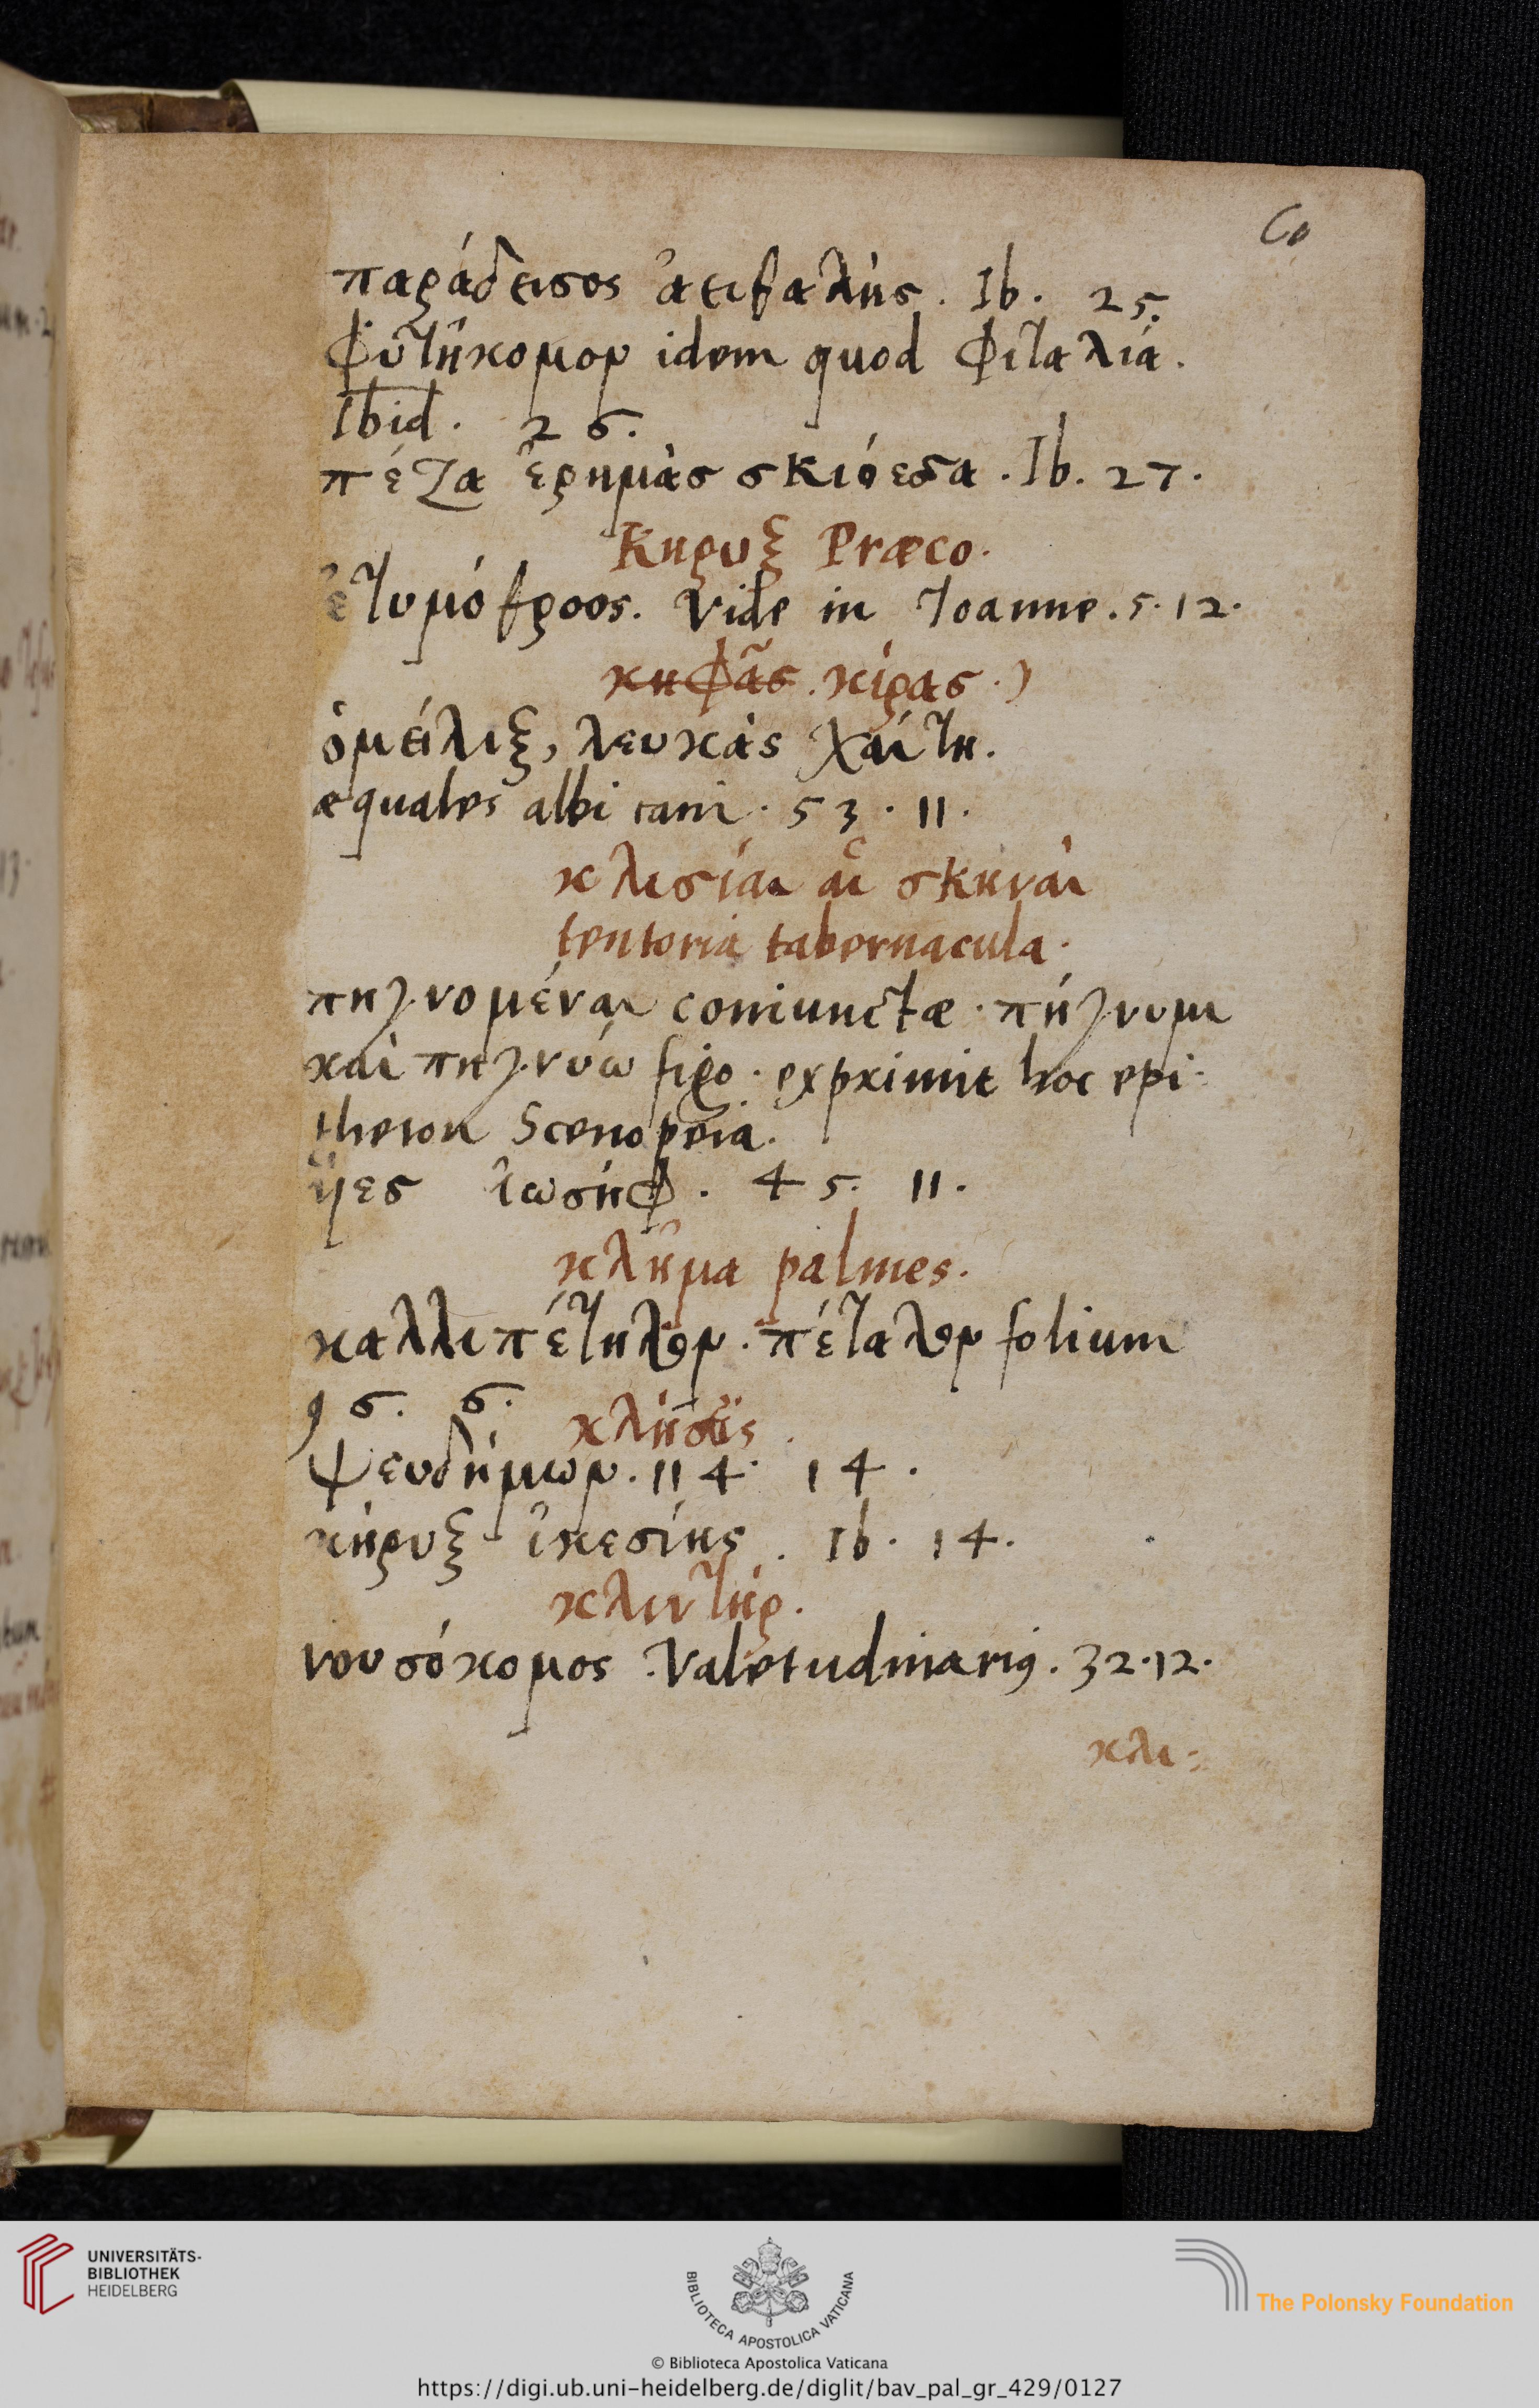 60
παράδεισος ἀειθαλής. Ib. 25.
Φυτηκομον idem quod Φιταλιά.
Ibid. 26.
πέζα ἐρημὰσ σκιόεσα. Ib. 27.
Κηρυξ Præco.
ἐτυμόθροος. Vide in Joanne. 5. 12.
κηφᾶσ. κέρας.
ὁμῆλιξ, λευκὰς χαίτη.
æquales albi cani. 53. 11.
κλισίαι αἱ σκηναὶ
tentoria tabernacula.
πηγνομέναι coniunctæ. πήγνυμι
καὶ πηγνύω figo. exprimit hoc epi-
theton Scenopeia.
υἷεσ ἰωσὴφ. 45. 11.
κλῆμα palmes.
καλλιπέτηλον. πέταλον folium
96. 6.
κλῆσις.
ψευδήμων. 114. 14.
κήρυξ ἱκεσίης. Ib. 14.
κλιντὴρ.
νουσόκομος. Valetudinarius. 32. 12.
κλι-
UNIVERSITÄTS-
BIBLIOTHEK
HEIDELBERG
BIBLIOTECA APOSTOLICA VATICANA
The Polonsky Foundation
© Biblioteca Apostolica Vaticana
https://digi.ub.uni-heidelberg.de/diglit/bav_pal_gr_429/0127